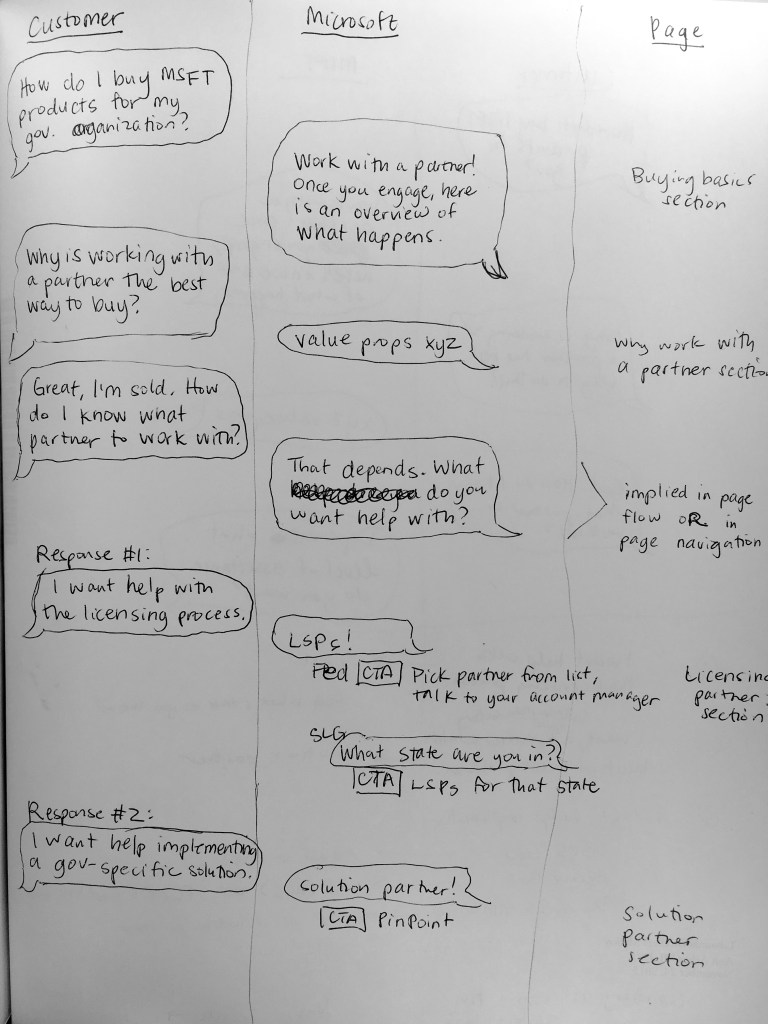 Customer
Microsoft
Page
How do I buy MSFT
products for my
gov. organization?
Work with a partner!
Once you engage, here
is an overview of
what happens.
Buying basics
section
Why is working with
a partner the best
way to buy?
value props xyz
why work with
a partner section
Great, I'm sold. How
do I know what
partner to work with?
That depends. What
do you
want help with?
implied in page
flow OR in
page navigation
Response #1:
I want help with
the licensing process.
LSPs!
Fed CTA Pick partner from list,
talk to your account manager
Licensing
partner
section
SLG
What state are you in?
CTA LSPs for that state
Response #2:
I want help implementing
a gov-specific solution.
solution partner!
CTA PinPoint
Solution
partner
section